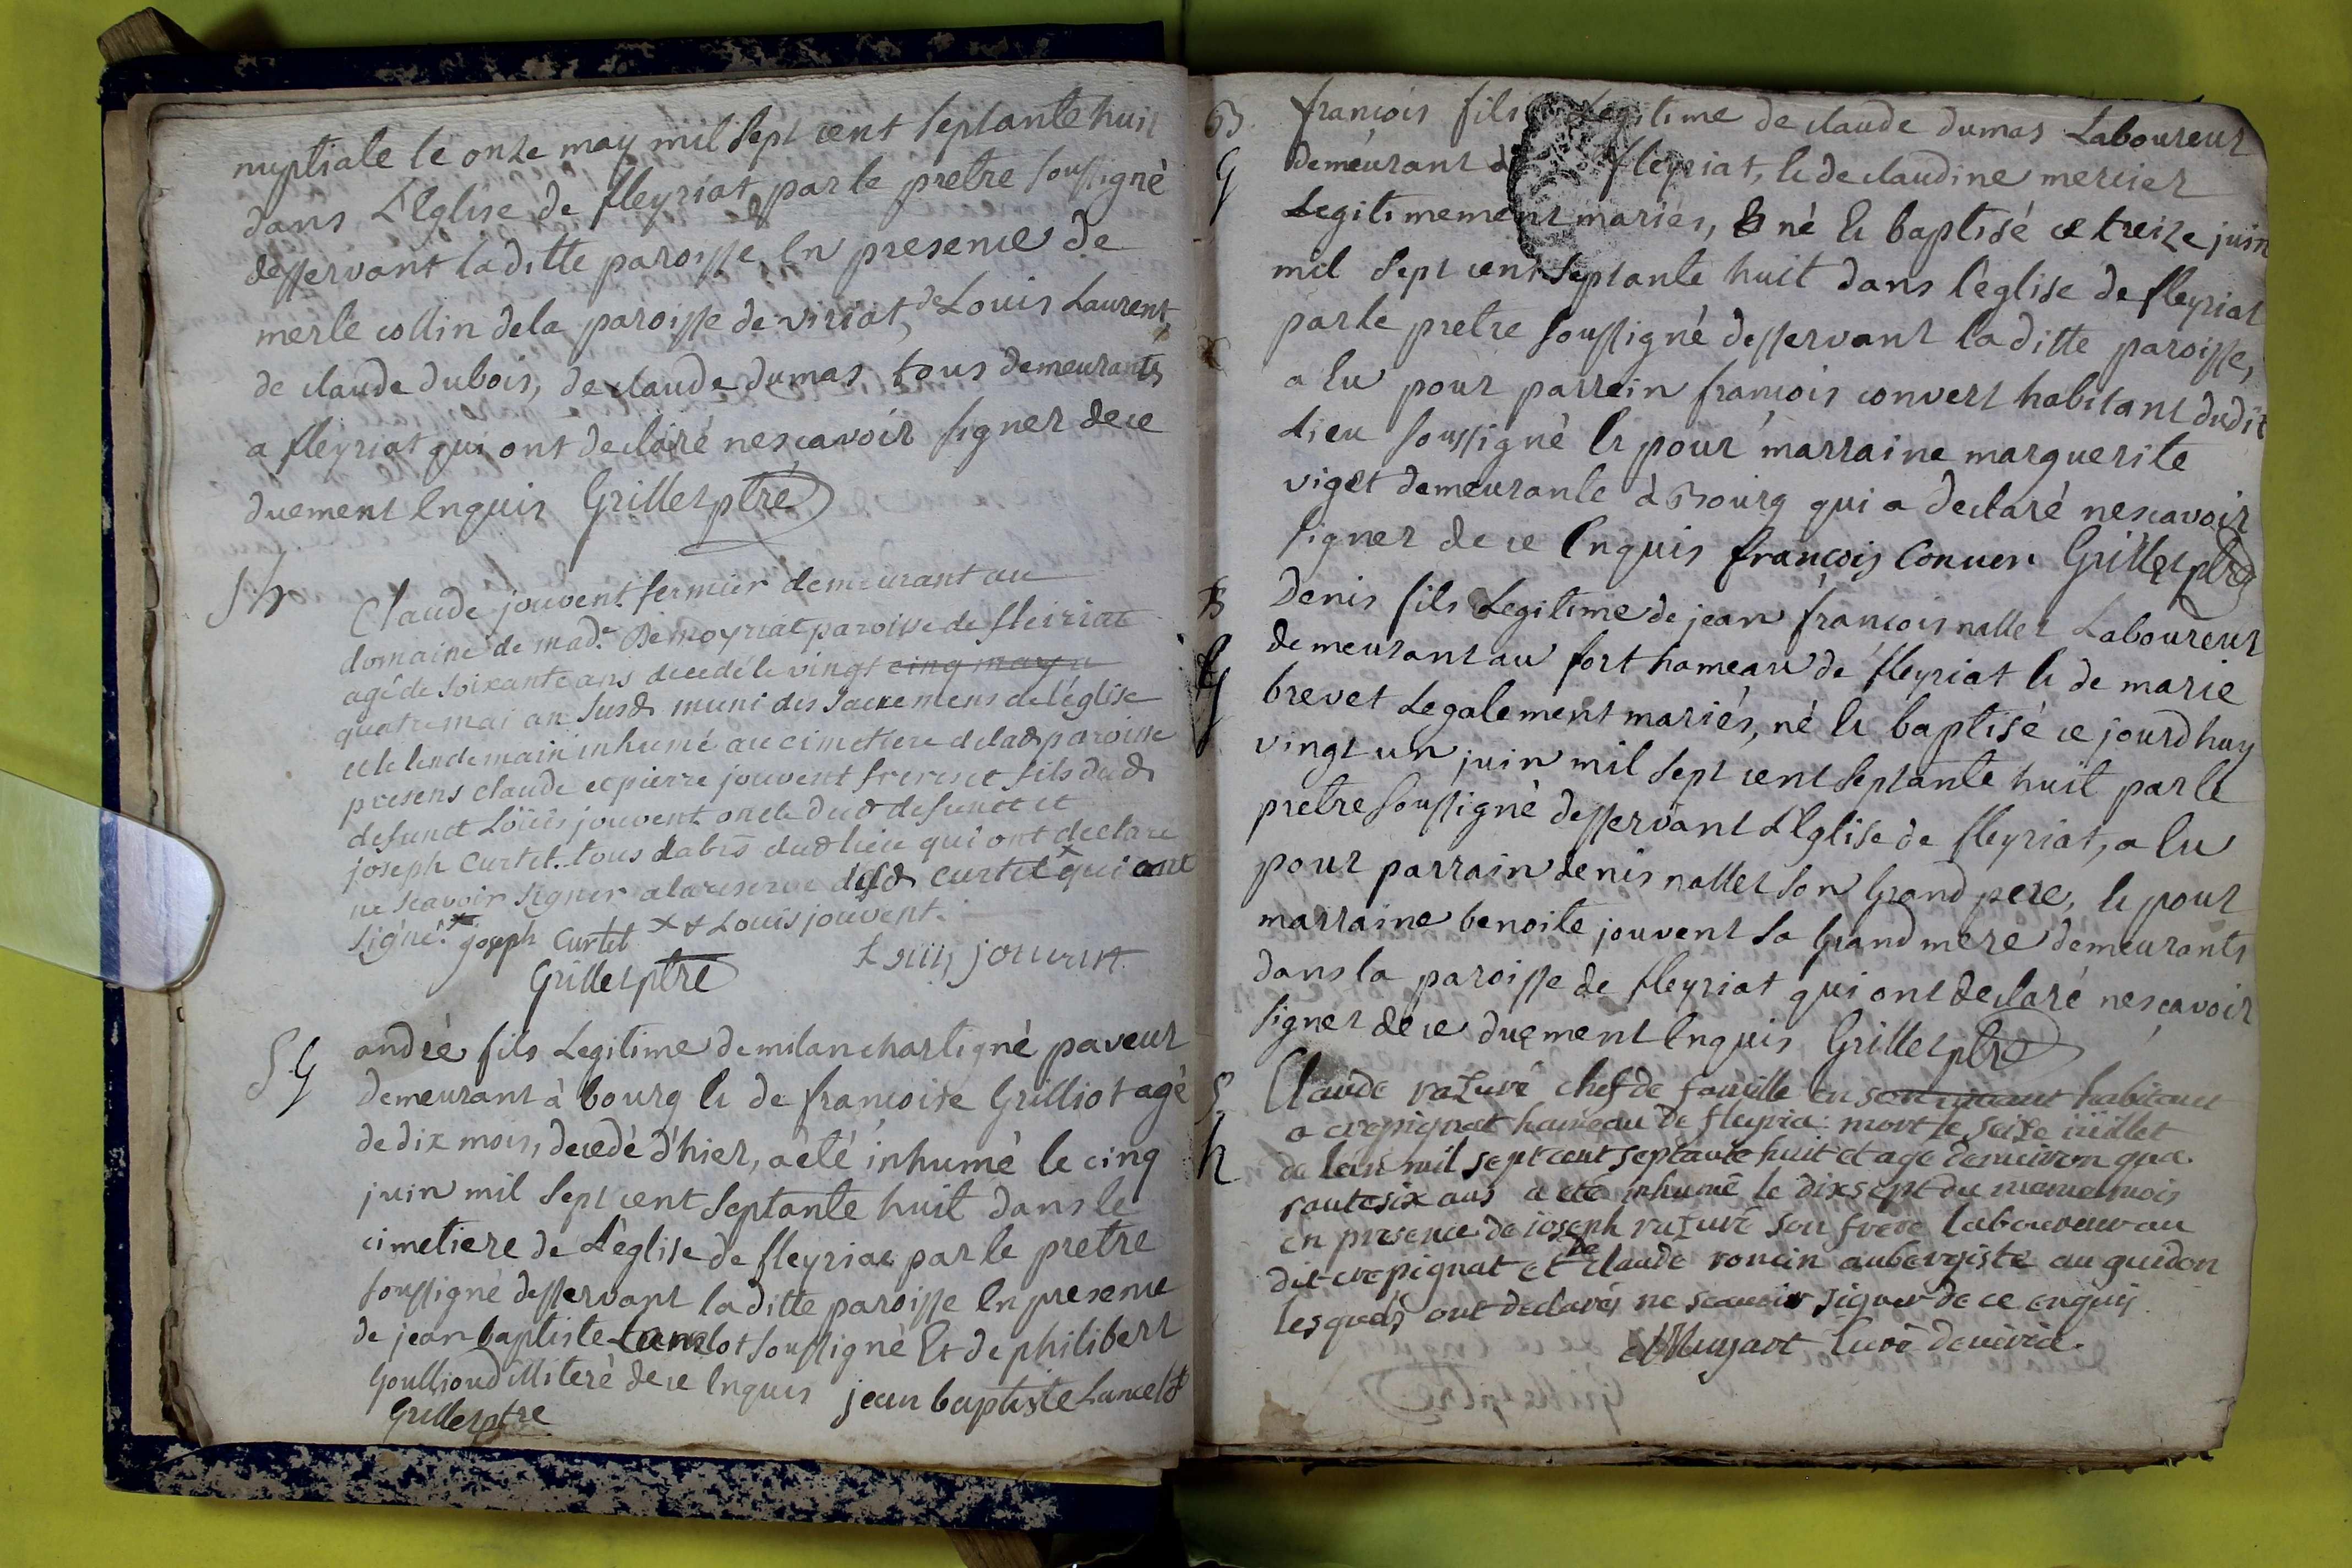 nuptiale le onze may mil Sept cent Septante huit
dans L'Eglise de fleyriat par le pretre soussigné
desservant laditte paroisse, En presence de
merle collin dela paroisse de viriat, de Louis Laurent,
de claude dubois, de claude dumas tous demeurants
a fleyriat qui ont declaré nescavoir signer dece
duement Enquis Grillet ptre
Sh
Claude jouvent fermier demeurant au
domaine de mad.e Demoyriat paroisse de fleiriat
agé de soixante ans decedé le vingt cinq may a
quatre mai an susd. muni des sacremens de l'église
et le lendemain inhumé au cimetiere de lad. paroisse
presens claude et pierre jouvent freres et fils dud.
defunct Loüis jouvent oncle dud. defunct et
joseph Curtet tous dud. lieu qui ont declare
ne scavoir signer a la reserve dud. Curtet x qui ont
signé. x joseph Curtet x & Louis jouvent.
Louis jouvent
Grillet ptre
SG
andré fils Legitime de milan chartigné paveur
demeurant à bourg Et de francoise Grilliot agé
de dix mois, decedé d'hier, a été inhumé le cinq
juin mil Sept cent Septante huit dans le
cimetiere de L'église de fleyriat par le pretre
soussigné desservant laditte paroisse En presence
de jean baptiste Lancelot soussigné Et de philibert
Goullioud illiteré dece Enquis jean baptiste Lancelot
Grillet ptre
B
G
francois fils Legitime de claude dumas Laboureur
demeurant à fleyriat, Et de claudine mercier
Legitimement mariés, né Et baptisé ce treize juin
mil Sept cent Septante huit dans l'église de fleyriat
par le pretre soussigné desservant laditte paroisse,
a Eu pour parrein francois convert habitant dudit
Lieu soussigné Et pour marraine marguerite
viget demeurante à Bourg qui a declaré nescavoir
signer de ce Enquis françois Conuer Grillet ptre
B
G
Denis fils Legitime de jean francois nallet Laboureur
demeurant au fort hameau de fleyriat Et de marie
brevet Legalement mariés, né Et baptisé ce jourdhuy
vingt un juin mil Sept cent Septante huit par le
pretre soussigné desservant L'Eglise de fleyriat, a Eu
pour parrain denis nallet son Grand pere, Et pour
marraine benoite jouvent sa Grand mere demeurants
dans la paroisse de fleyriat qui ont declaré nescavoir
signer de ce duement Enquis Grillet ptre
S
h
Claude razuré chef de famille en son vivant habitant
a crepignat hameau de fleyria: mort le seize iüillet
de l'an mil sept cent septante huit et age denviron qua
rante six ans a eté inhumé le dix sept du meme mois
en presence de ioseph razuré son frere laboureur au
dit crepignat et de claude roncin aubergiste au guidon
lesquels ont declarés ne scavoir signer de ce enquis
Muyart Curé de viria.